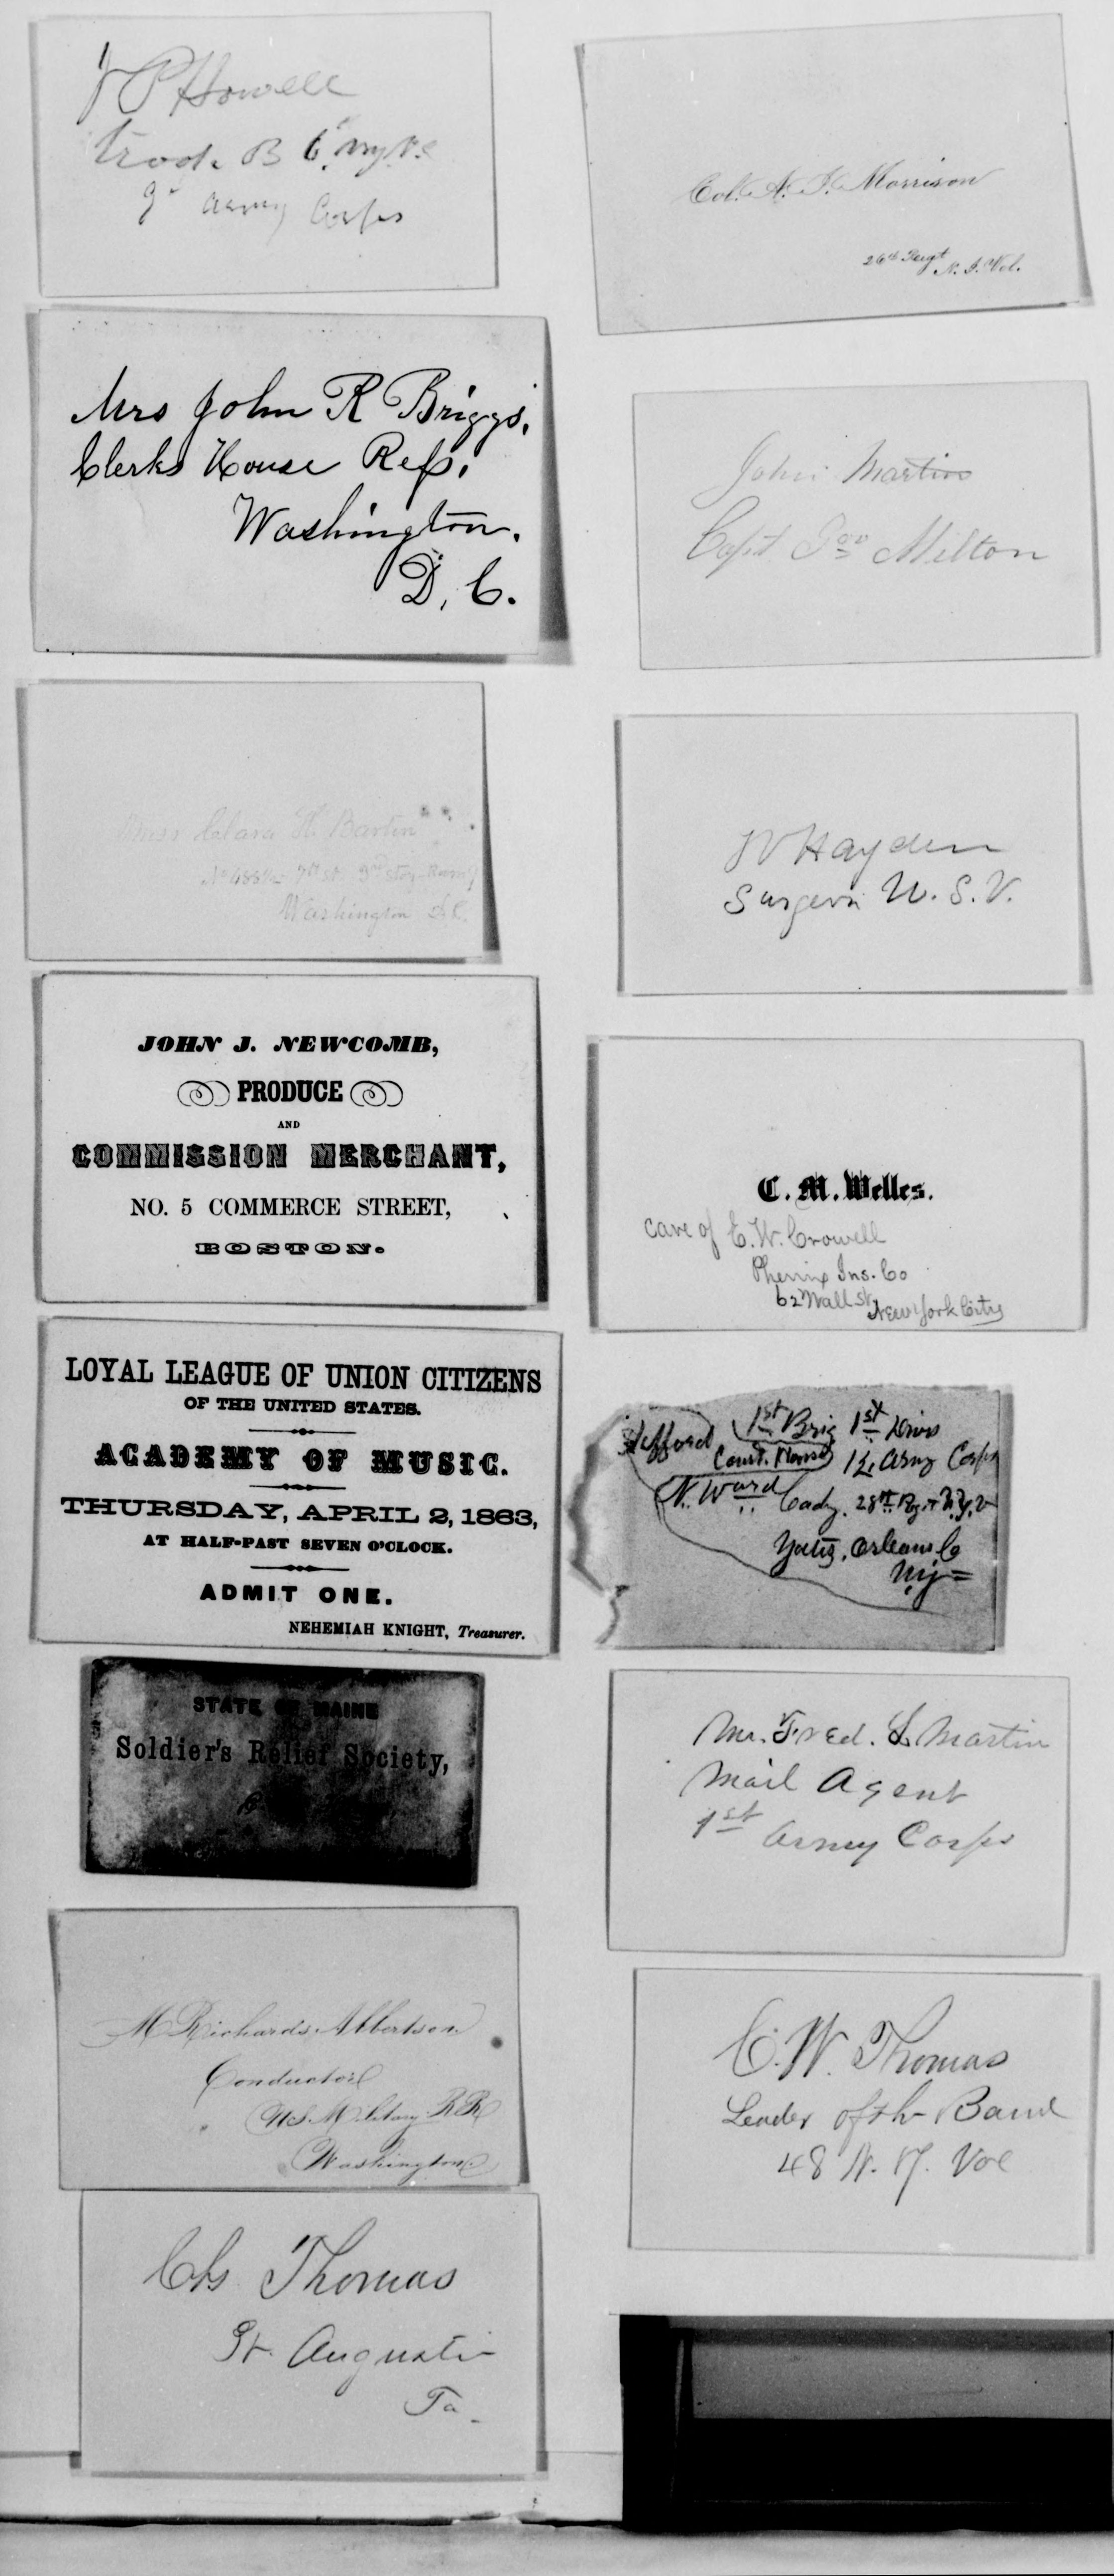 J P Howell
Troop B 6" NY V.C
9" Army Corps
Mrs John R Briggs,
Clerks House Reps.
Washington.
D. C.
Miss Clara H. Barton
No 488½ 7th St. 3rd story Room 9
Washington D.C.
JOHN J. NEWCOMB,
PRODUCE
AND
COMMISSION MERCHANT,
NO. 5 COMMERCE STREET,
BOSTON.
LOYAL LEAGUE OF UNION CITIZENS
OF THE UNITED STATES.
ACADEMY OF MUSIC.
THURSDAY, APRIL 2, 1863,
AT HALF-PAST SEVEN O'CLOCK.
ADMIT ONE.
NEHEMIAH KNIGHT, Treasurer.
STATE OF MAINE
Soldier's Relief Society,
M Richards Albertson
Conductor
U.S. Military R R
Washington
Chs Thomas
St. Augustin
Fa
Col. A. J. Morrison
26th Regt N. J. Vol.
John Martin
Capt Gov Milton
W Hayden
Surgeon U. S. V.
C. M. Welles.
care of E. W. Crowell
Phenix Ins. Co
62 Wall St.
New York City
Stafford 1st Brig 1st Divis
Court. House 12 Army Corps
N. Ward Cady. 28th Regt N.Y.V
Yates, Orleans Co
N.y
Mr. Fred. L Martin
Mail Agent
1st Army Corps
C. W. Thomas
Leader of th Band
48 N. Y. Vol